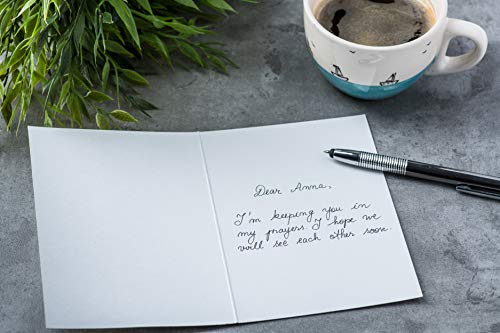 Dear Anna,
I'm keeping you in
my prayers. I hope we
will see each other soon.